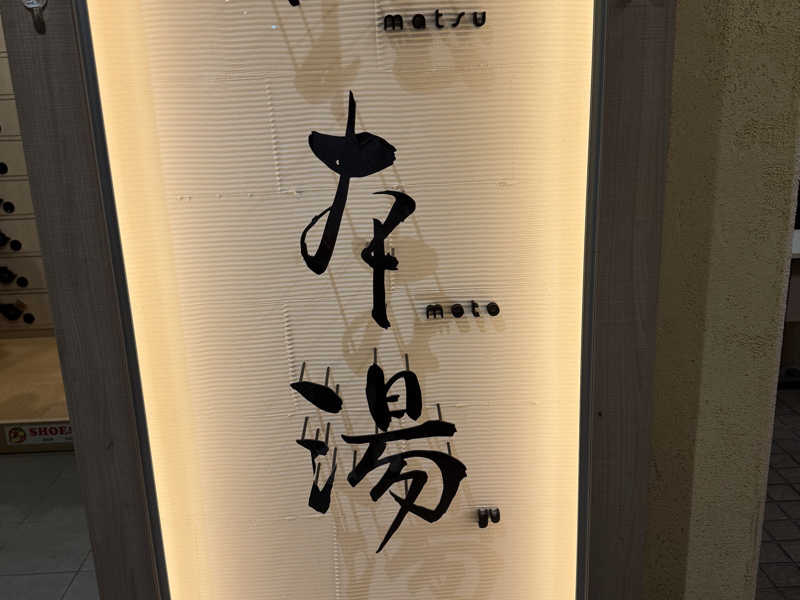 matsu
本
moto
湯
yu
SHOE